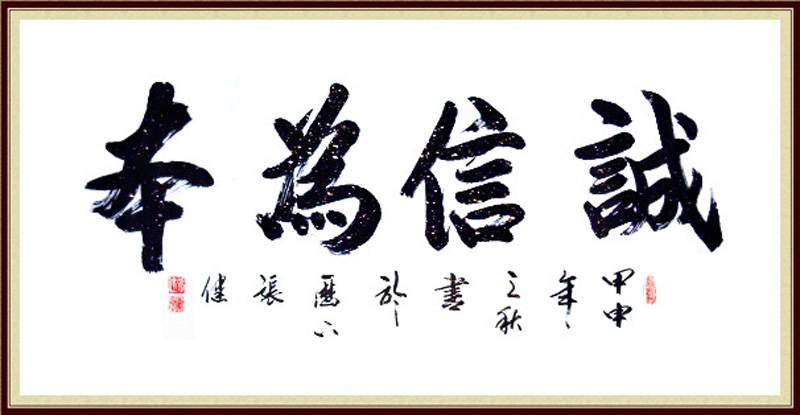 誠信為本
甲申年之秋書於歷下張健